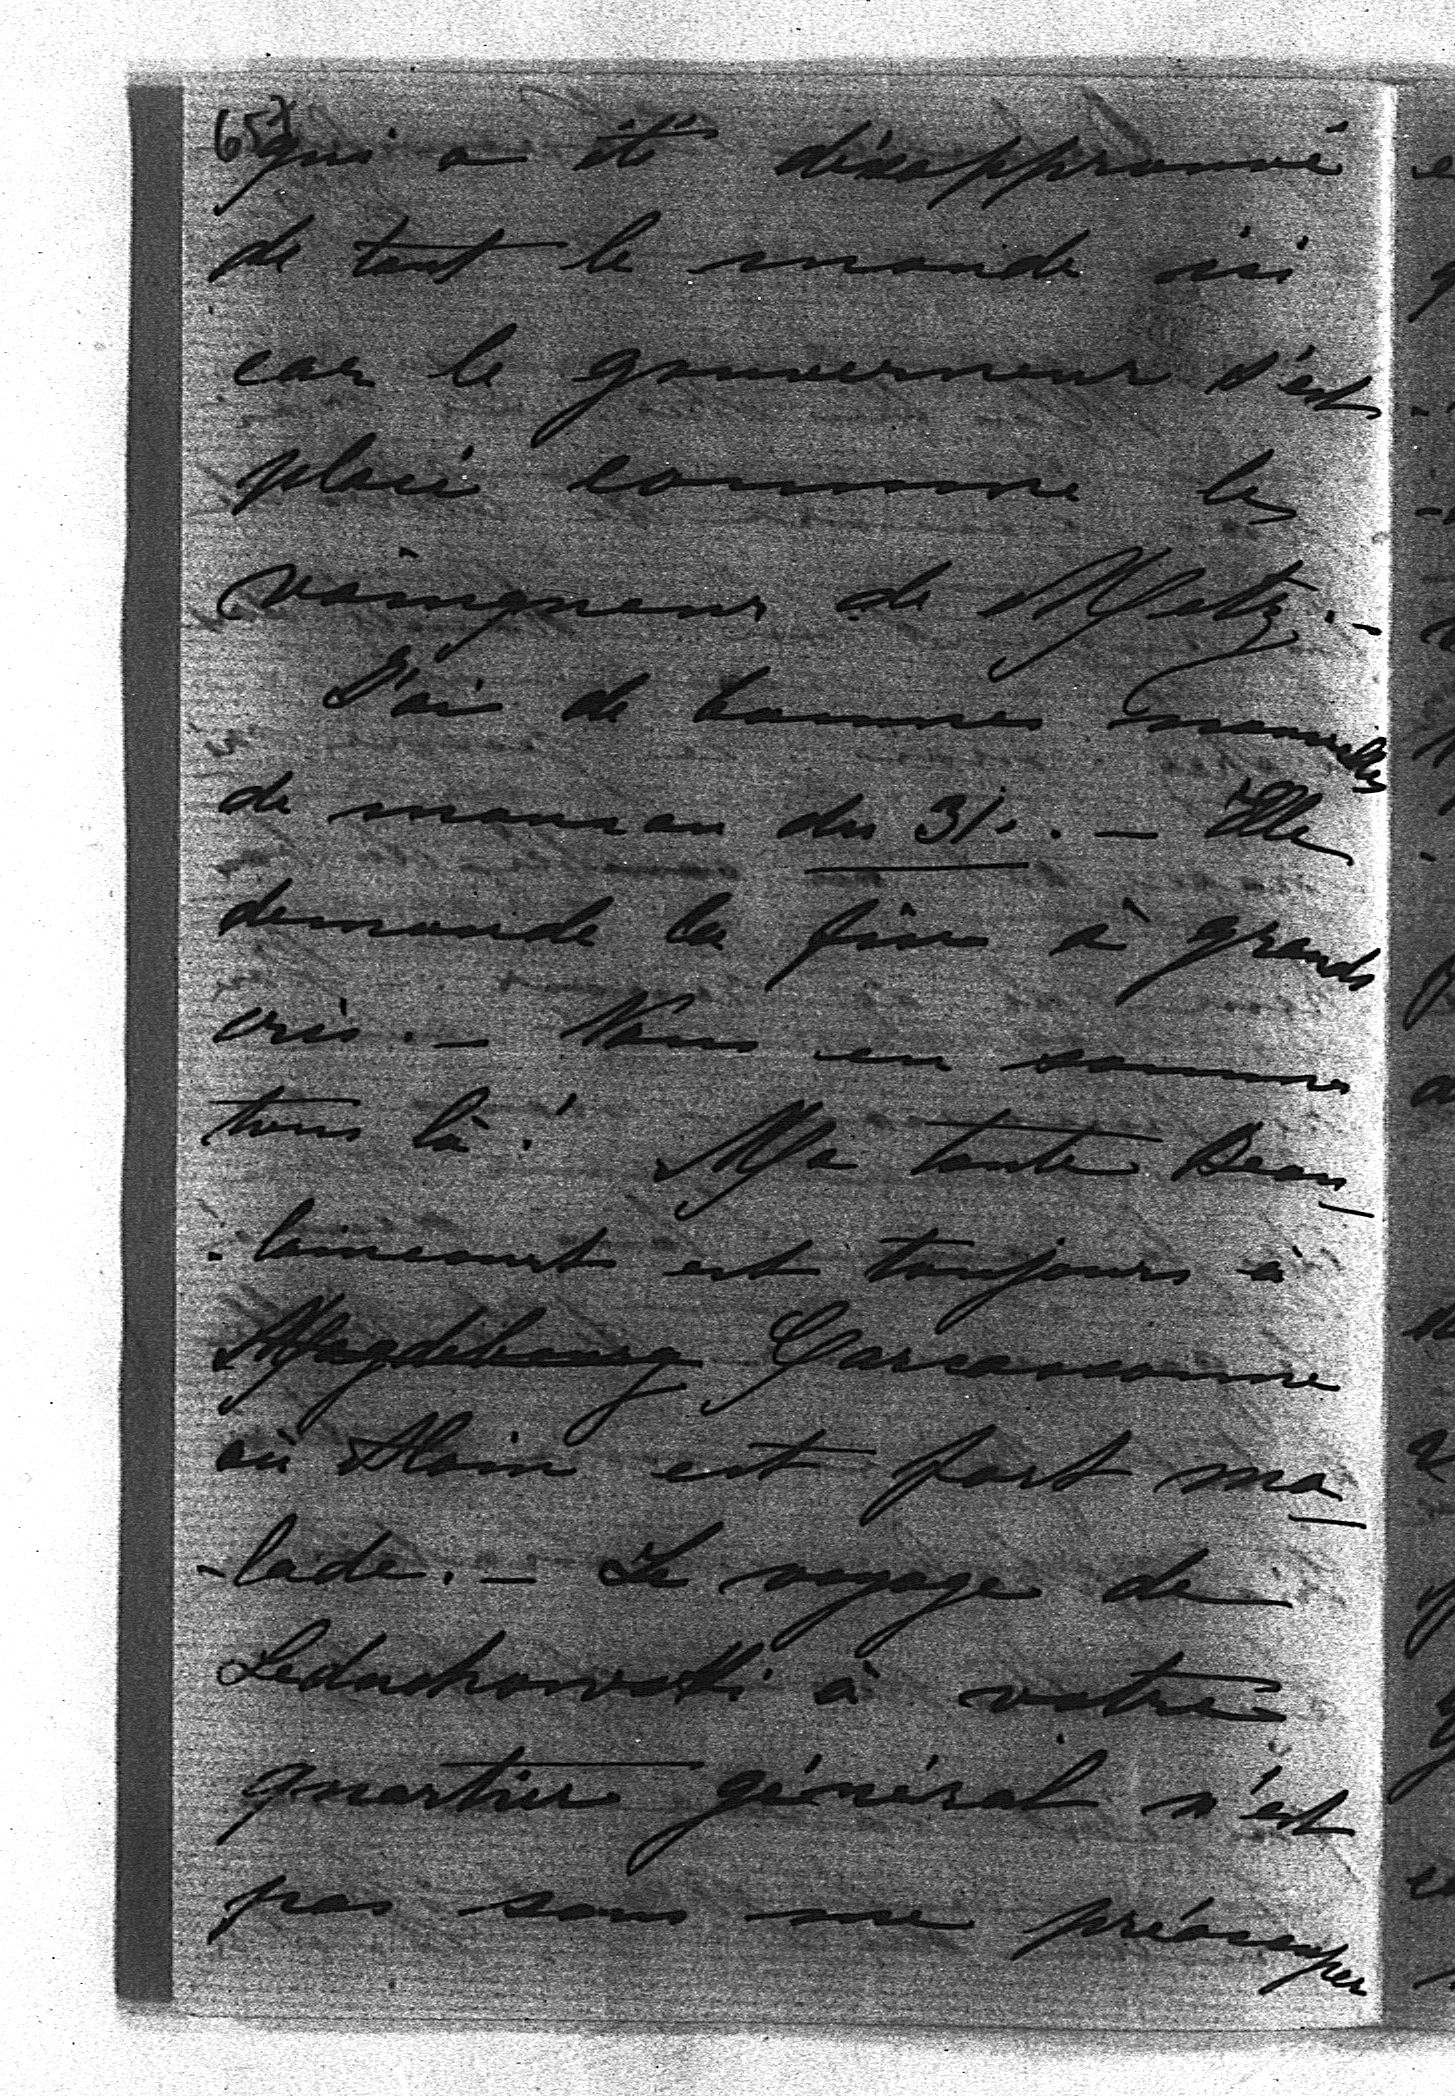 653
qui a été désapprouvé
de tout le monde ici
car le gouverneur s'est
placé comme les
vainqueurs de Metz. -
J'ai de bonnes nouvelles
de maman du 31. . - Elle
demande la fin à grands
cris. - Nous en sommes
tous là ! Ma tante Beau
- laincourt est toujours à
Magdebourg Carcassonne
où Alain est fort ma
- lade. - Le voyage de
Leduchowski à votre
quartier général n'est
pas sans me préoccuper